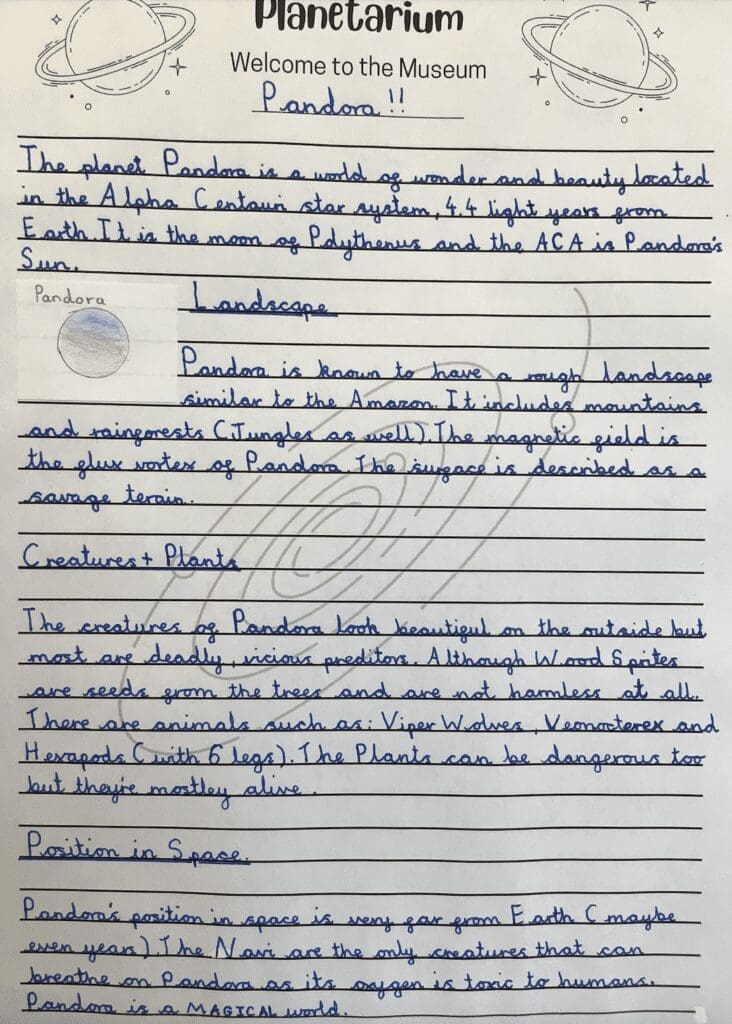 Planetarium
Welcome to the Museum
Pandora!!
The planet Pandora is a world of wonder and beauty located
in the Alpha Centauri star system, 4.4 light years from
Earth. It is the moon of Polythenus and the ACA is Pandora's
Sun.
Pandora
Landscape
Pandora is known to have a rough landscape
similar to the Amazon. It includes mountains
and rainforests (Jungles as well). The magnetic field is
the flux vortex of Pandora. The surface is described as a
savage terain.
Creatures + Plants
The creatures of Pandora look beautiful on the outside but
most are deadly, vicious preditors. Although Wood Sprites
are seeds from the trees and are not harmless at all.
There are animals such as: Viper Wolves, Veonocterex and
Hexapods (with 6 legs). The Plants can be dangerous too
but they're mostley alive.
Position in Space.
Pandora's position in space is very far from Earth (maybe
even years). The Navi are the only creatures that can
breathe on Pandora as its oxygen is toxic to humans.
Pandora is a MAGICAL world.